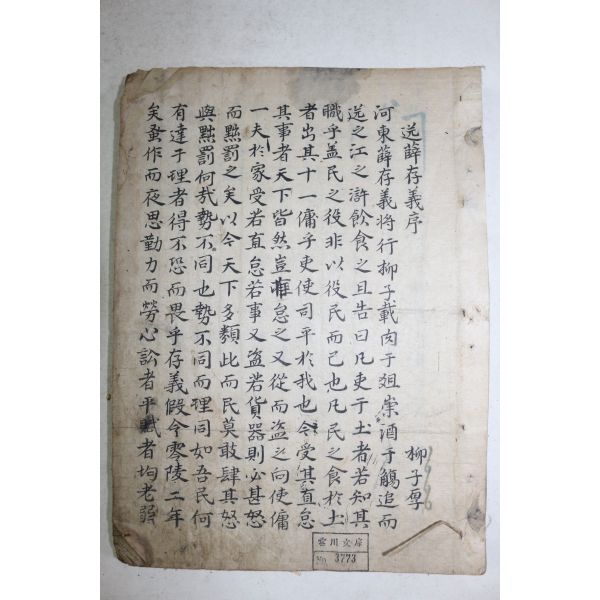 送薛存義序 柳子厚
河東薛存義將行柳子載肉于爼崇酒于觴追而
送之江之滸飮食之且告曰凡吏于土者若知其
職乎盖民之役非以役民而已也凡民之食於土
者出其十一傭乎吏使司平於我也今受其直怠
其事者天下皆然豈惟怠之又從而盗之向使傭
一夫於家受若直怠若事又盗若貨器則必甚怒
而黜罰之矣以今天下多類此而民莫敢肆其怒
與黜罰何㢤勢不同也勢不同而理同如吾民何
有達于理者得不恐而畏乎存義假令零陵二年
矣蚤作而夜思勤力而勞心訟者平賦者均老弱
雲川文庫
No 3773